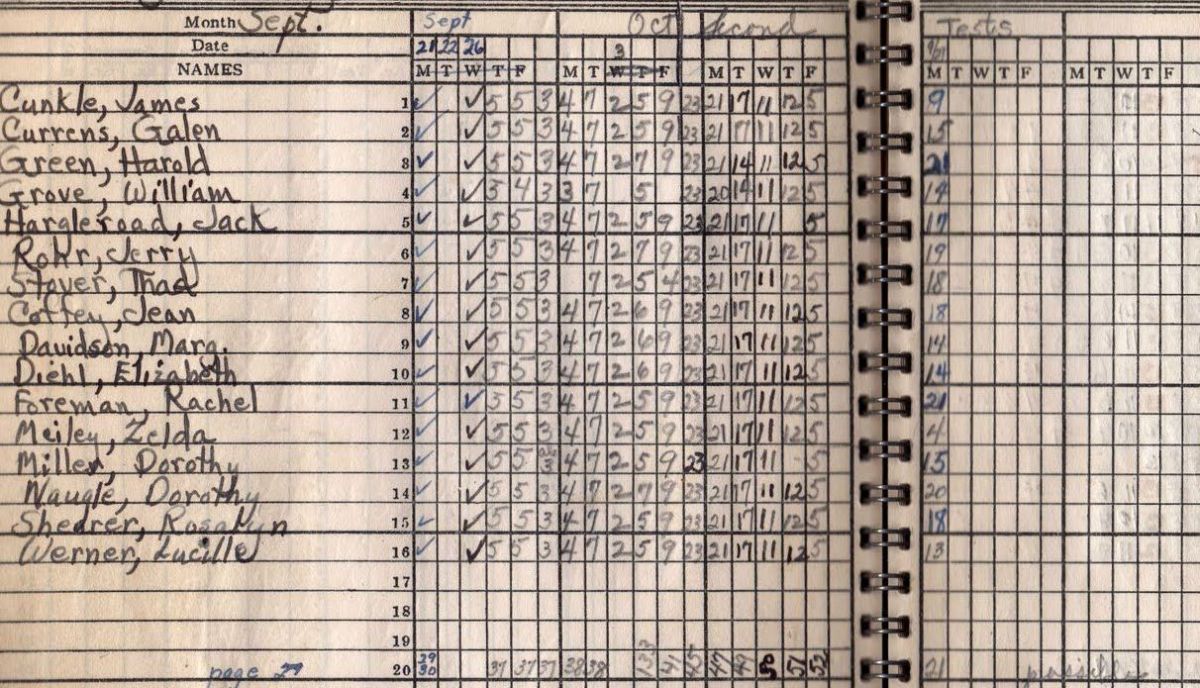 Month Sept. Sept Oct second Tests
Date 21 22 26 3 9/21
NAMES M T W T F M T W T F M T W T F M T W T F M T W T F
Cunkle, James 1 ✓ ✓ 5 5 3 4 7 2 5 9 23 21 17 11 12 5 9
Currens, Galen 2 ✓ ✓ 5 5 3 4 7 2 5 9 23 21 17 11 12 5 15
Green, Harold 3 ✓ ✓ 5 5 3 4 7 2 7 9 23 21 14 11 12 5 21
Grove, William 4 ✓ ✓ 5 4 3 3 7 5 23 20 14 11 12 5 14
Hargleroad, Jack 5 ✓ ✓ 5 5 3 4 7 2 5 9 23 21 17 11 5 17
Rohr, Jerry 6 ✓ ✓ 5 5 3 4 7 2 7 9 23 21 17 11 12 5 19
Stover, Thad 7 ✓ ✓ 5 5 3 7 2 5 4 23 21 17 11 12 5 18
Coffey, Jean 8 ✓ ✓ 5 5 3 4 7 2 6 9 23 21 17 11 12 5 18
Davidson, Marg. 9 ✓ ✓ 5 5 3 4 7 2 6 9 23 21 17 11 12 5 14
Diehl, Elizabeth 10 ✓ ✓ 5 5 3 4 7 2 6 9 23 21 17 11 12 5 14
Foreman, Rachel 11 ✓ ✓ 5 5 3 4 7 2 5 9 23 21 17 11 12 5 21
Meiley, Zelda 12 ✓ ✓ 5 5 3 4 7 2 5 9 23 21 17 11 12 5 4
Miller, Dorothy 13 ✓ ✓ 5 5 3 4 7 2 5 9 23 21 17 11 5 15
Naugle, Dorothy 14 ✓ ✓ 5 5 3 4 7 2 7 9 23 21 17 11 12 5 20
Shearer, Rosalyn 15 ✓ ✓ 5 5 3 4 7 2 5 9 23 21 17 11 12 5 18
Werner, Lucille 16 ✓ ✓ 5 5 3 4 7 2 5 9 23 21 17 11 12 5 13
17
18
19
page 29 20 29 30 37 37 37 38 38 41 45 47 49 50 51 52 21 possible